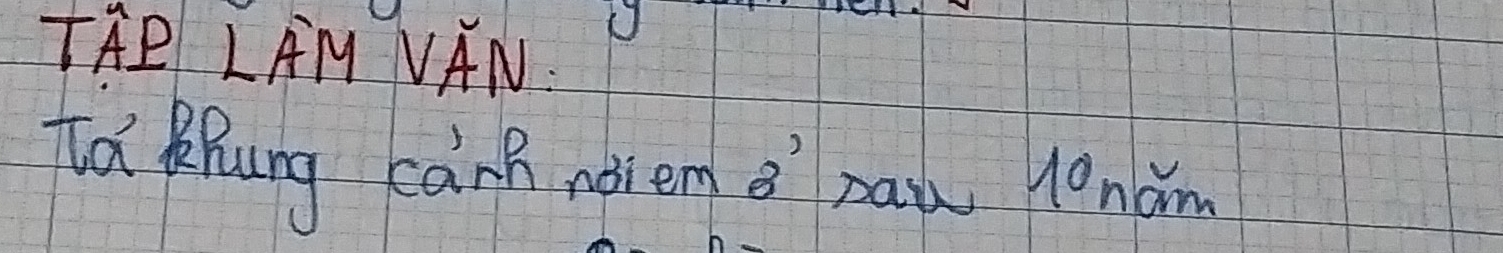 TẬP LÀM VĂN:
Tả khung cảnh nơi em ở sau 10 năm